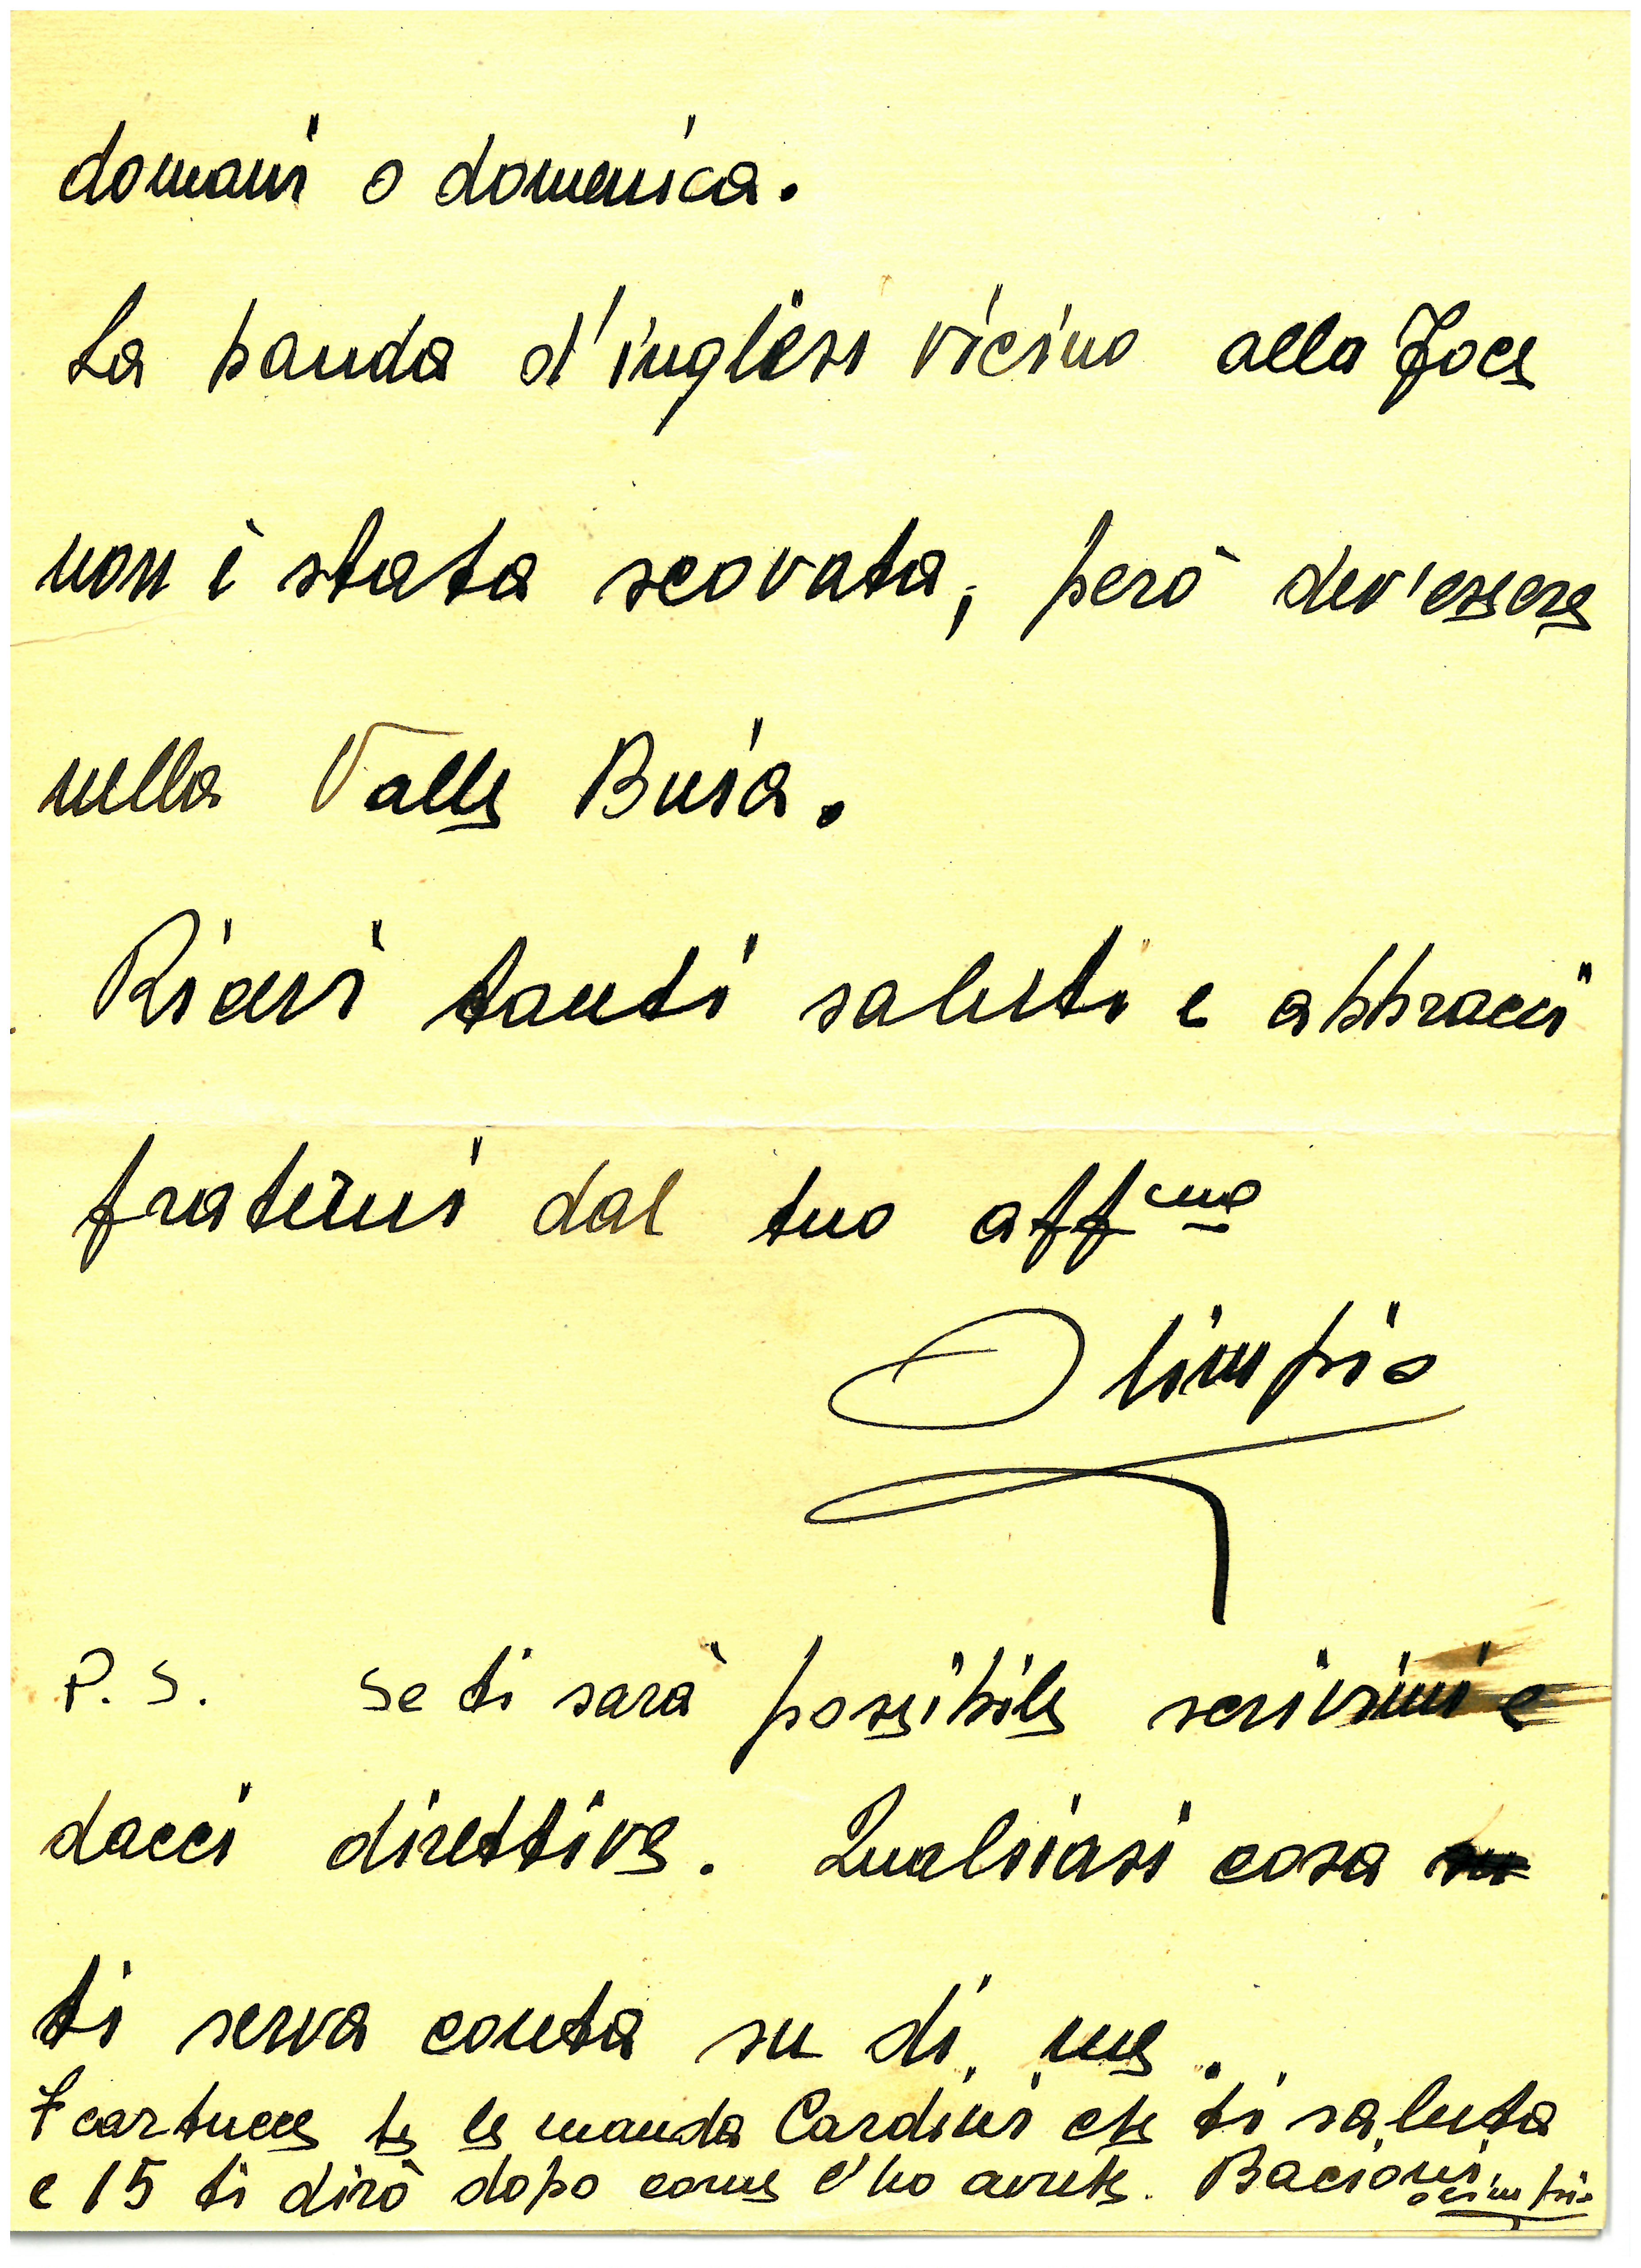 domani o domenica.
La banda d'inglesi vicino alla Foce
non è stata scovata, però dev'essere
nella Valle Busa.
Ricevi tanti saluti e abbracci
fraterni dal tuo aff.mo
Olimpio
P.S. Se ti sarà possibile scrivimi e
dacci direttive. Qualsiasi cosa
ti serva conta su di me.
7 cartucce te le manda Cardini che ti saluta
e 15 ti dirò dopo come l'ho avute. Bacioni.
Olimpio